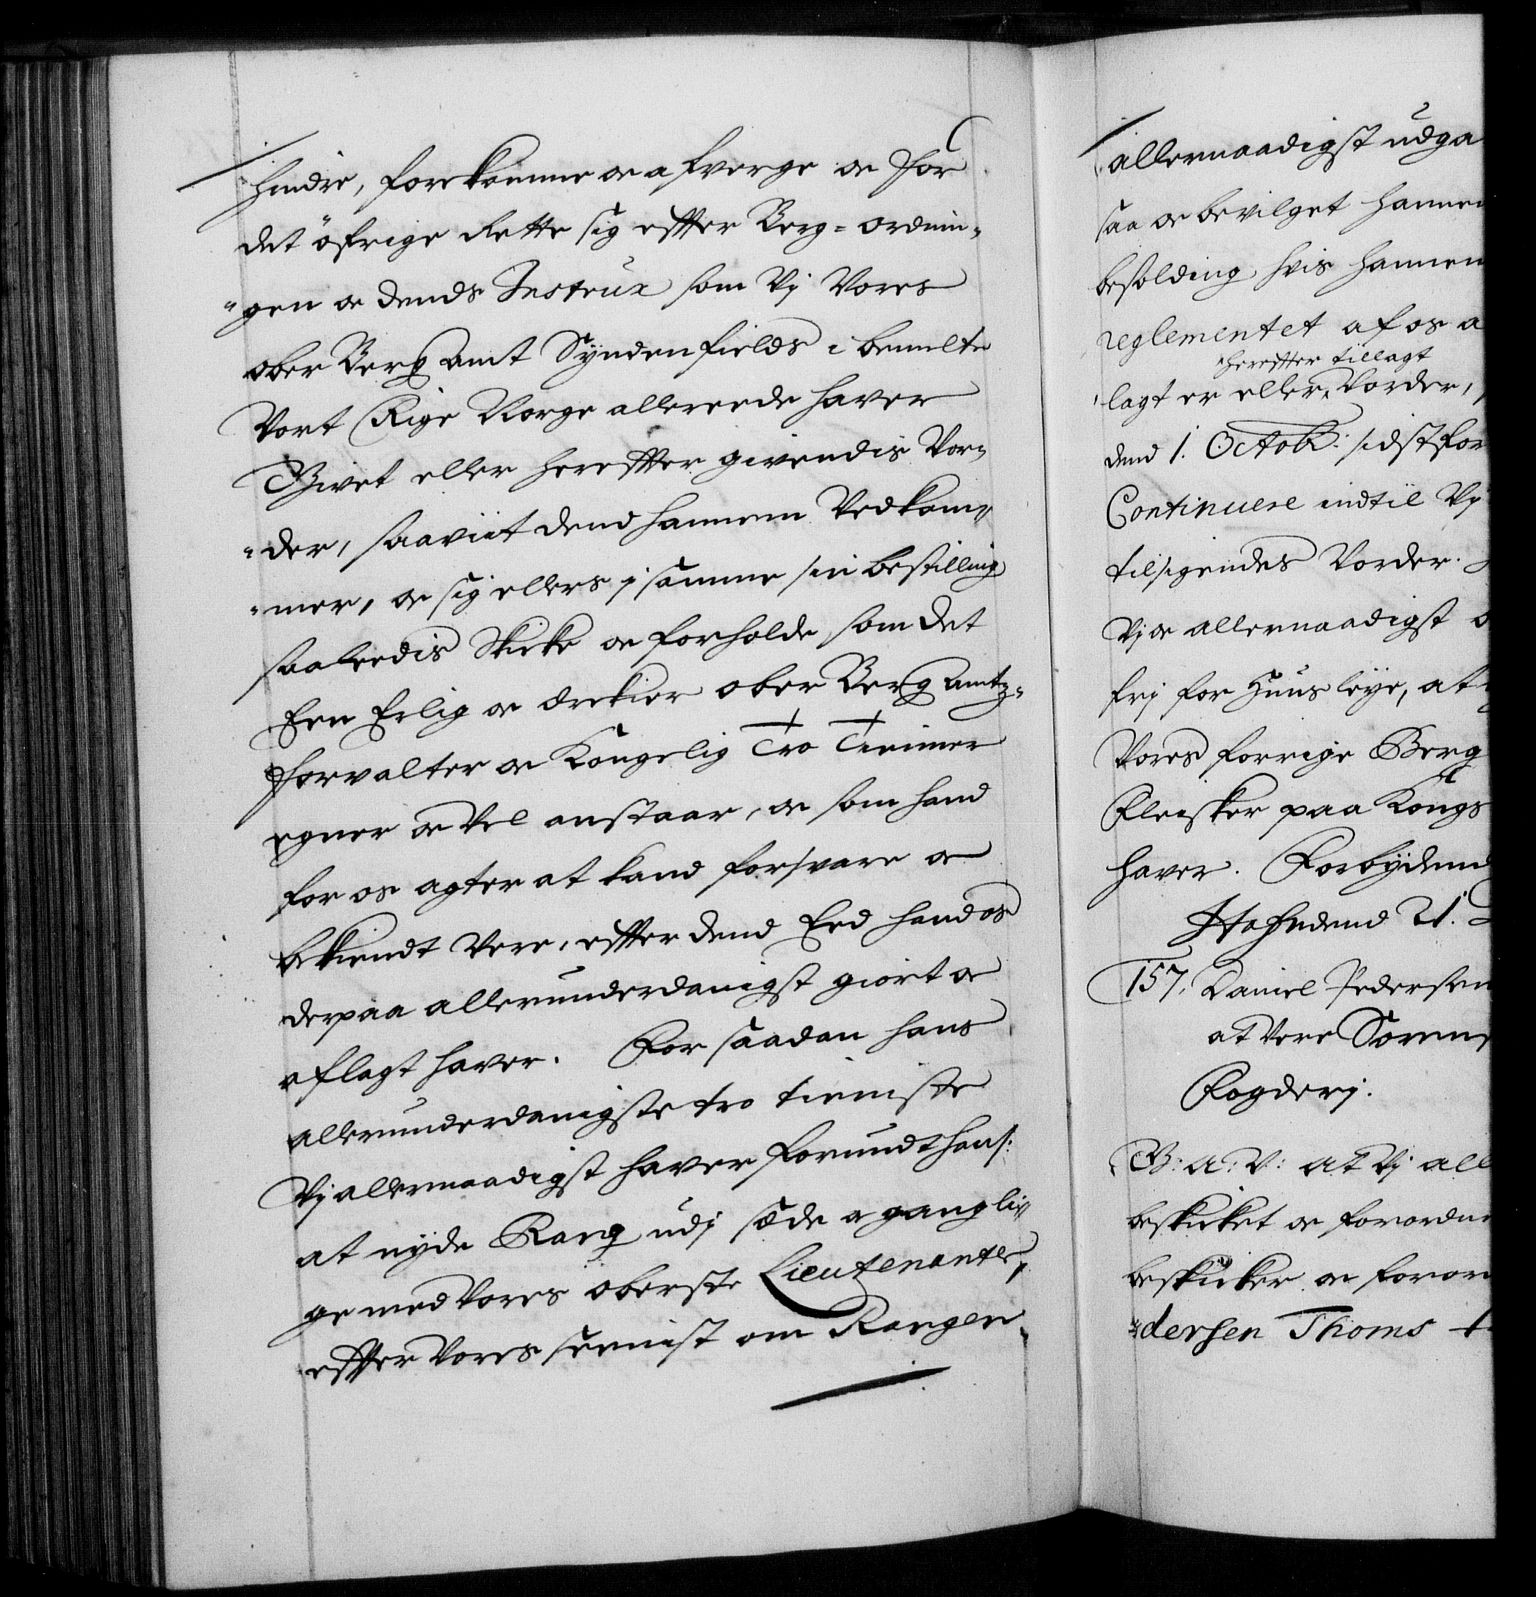 hindre, forekomme oc afverge oc for
det öfrige Rette sig efter Berg-ordnin-
gen oc dends Instrux som Vj Vores
ober Berg amt Syndenfields i bemelte
Vort Rige Norge allereede haver
Givet eller herefter givendis Vor-
der, saaviit dend hannem Vedkom-
mer, oc sig ellers j samme sin bestilling
saaleedis Skicke oc forholde som det
Een Erlig oc drektier ober Berg amtz-
forvalter oc Kongelig Tro Tienner
egner oc Vel anstaar, oc som hand
for os agter at kand forsvare oc
bekiendt Vere, efter dend Eed hand os
derpaa allerunderdanigst giort oc
aflagt haver. For saadan hans
allerunderdanigste tro tieniste
Vj allernaadigst haver forundt hans:
at nyde Rang udj sæde oc gangli-
ge med Vores oberste Lieutenanter,
efter Vores seenist om Rangen
allernaadigst udga
saa oc bevilget hannem
besolding hvis hannem
reglementet af os a
herefter tillagt
lagt er eller Vorder,
dend 1. Octobr: sidstfor
Continuere indtil Vj
tilsigendes Vorder.
Vj oc allernaadigst
frj for Huus leye, at
Vores forrige Berg
Fleisker paa Kongs
haver. Forbydend
Hafn dend 21.
157. Daniel Pedersen
at Vere Sorens
Fogderj.
G: A: V: at Vj all
beskicket oc forordn
beskicker oc foror
dersen Thoms